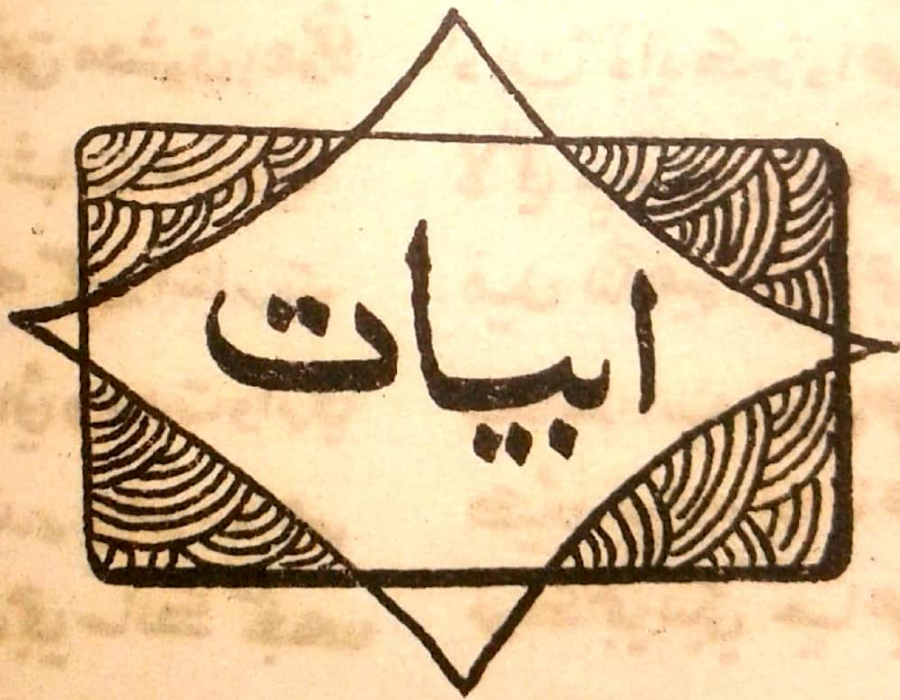 ابيات